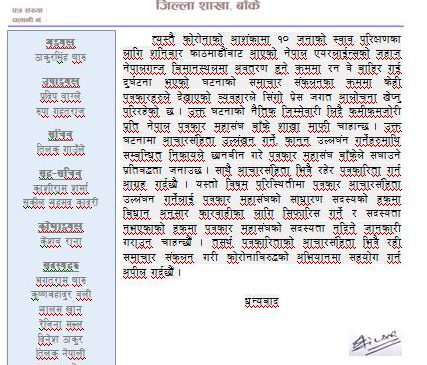 पत्र संख्या :
चलानी नं. :
जिल्ला शाखा, बाँके
अध्यक्ष
ठाकुरसिंह थारु
उपाध्यक्ष
रुपा गहतराज
सचिव
तिलक गाउँले
सह-सचिव
काशीराम शर्मा
कोषाध्यक्ष
केशव राना
सदस्यहरु
भगतराम थारु
कृष्णबहादुर वली
आलम खान
रेजिना मल्ल
दिनेश ठाकुर
तिलक नेपाली
त्यस्तै कोरोनाको आशंकामा १० जनाको स्वाव परिक्षणका
लागि शनिबार काठमाडौंबाट आएको नेपाल एयरलाईन्सको जहाज
नेपालगन्ज बिमानस्थलमा अवतरण हुने क्रममा रन वे बाहिर गई
दुर्घटना भएको घटनाको समाचार संकलनका क्रममा केही
पत्रकारहरुले देखाएको व्यवहारले सिंगो प्रेस जगत आलोचना खेप्नु
परिरहेको छ । उक्त घटनाको नैतिक जिम्मेवारी लिदै कमीकमजोरी
प्रति नेपाल पत्रकार महासंघ बाँके शाखा माफी चाहान्छ । उक्त
घटनामा आचारसंहिता उल्लंघन गर्ने, कानुन उल्लंघन गर्नेहरुमाथि
सम्बन्धित निकायले छानबीन गरे पत्रकार महासंघ बाँकेले सघाउने
प्रतिबद्धता जनाउछ । साथै आचारसंहिता भित्रै रहेर पत्रकारिता गर्न
आग्रह गर्दछौं । यस्तो विषम परिस्थितीमा पत्रकार आचारसंहिता
उल्लंघन गर्नेलाई पत्रकार महासंघको साधारण सदस्यको हकमा
विधान अनुसार कारवाहीका लागि सिफारिस गर्ने र सदस्यता
नभएकाको हकमा पत्रकार महासंघको सदस्यता नदिने जानकारी
गराउन चाहन्छौं । तसर्थ पत्रकारिताको आचारसंहिता भित्रै रही
समाचार संकलन गरी कोरोनाबिरुद्धको अभियानमा सहयोग गर्न
अपील गर्दछौं ।
धन्यवाद